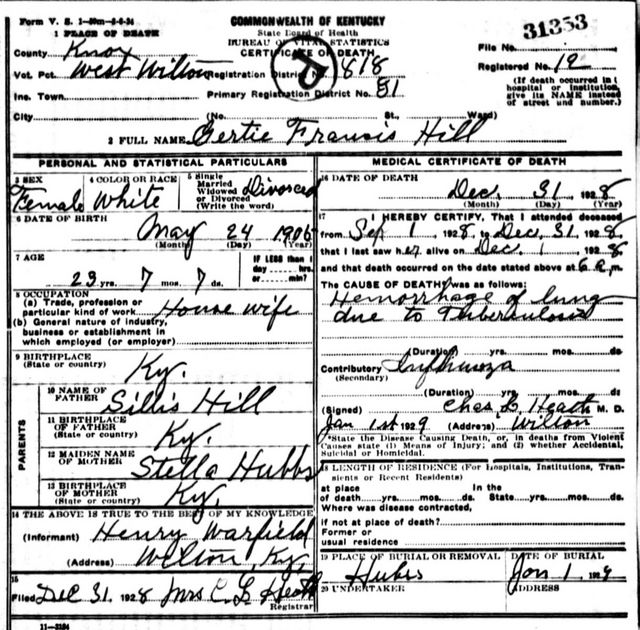 Form V. S. 1-50m-5-6-24
COMMONWEALTH OF KENTUCKY
State Board of Health
BUREAU OF VITAL STATISTICS
CERTIFICATE OF DEATH
31353
1 PLACE OF DEATH
File No.
County Knox
Registered No. 12
Vot. Pct. West Wilton Registration District No. 818
(If death occurred in a hospital or institution, give its NAME instead of street and number.)
Inc. Town Primary Registration District No. 81
City (No. St., Ward)
2 FULL NAME Gertie Francis Hill
PERSONAL AND STATISTICAL PARTICULARS
3 SEX Female
4 COLOR OR RACE White
5 Single Married Widowed or Divorced (Write the word) Divorced
6 DATE OF BIRTH
May 24 1905
(Month) (Day) (Year)
7 AGE
23 yrs. 7 mos. 7 ds.
IF LESS than 1 day ---- hrs. or ---- min?
8 OCCUPATION
(a) Trade, profession or particular kind of work House wife
(b) General nature of industry, business or establishment in which employed (or employer)
9 BIRTHPLACE
(State or country) Ky.
PARENTS
10 NAME OF FATHER Sillis Hill
11 BIRTHPLACE OF FATHER
(State or country) Ky.
12 MAIDEN NAME OF MOTHER Stella Hubbs
13 BIRTHPLACE OF MOTHER
(State or country) Ky.
14 THE ABOVE IS TRUE TO THE BEST OF MY KNOWLEDGE
(Informant) Henry Warfield
(Address) Wilton, Ky,
15
Filed Dec 31 1928 Mrs C L Heath
Registrar
11-3184
MEDICAL CERTIFICATE OF DEATH
16 DATE OF DEATH
Dec. 31 1928
(Month) (Day) (Year)
17 I HEREBY CERTIFY, That I attended deceased
from Sep 1, 1928, to Dec, 31, 1928,
that I last saw her alive on Dec, 1, 1928
and that death occurred on the date stated above at 6 a.m.
The CAUSE OF DEATH was as follows:
Hemorrhage of lung
due to Tuberculosis
(Duration) yrs. mos. ds.
Contributory Influenza
(Secondary)
(Duration) yrs. mos. ds.
(Signed) Chas L. Heath M. D.
Jan 1st 1929 (Address) Wilton
*State the Disease Causing Death, or, in deaths from Violent Causes state (1) Means of Injury; and (2) whether Accidental, Suicidal or Homicidal.
18 LENGTH OF RESIDENCE (For Hospitals, Institutions, Transients or Recent Residents)
at place of death yrs. mos. ds. In the State yrs. mos. ds.
Where was disease contracted,
if not at place of death?
Former or usual residence
19 PLACE OF BURIAL OR REMOVAL
Hubbs
DATE OF BURIAL
Jan 1. 1929
20 UNDERTAKER
ADDRESS